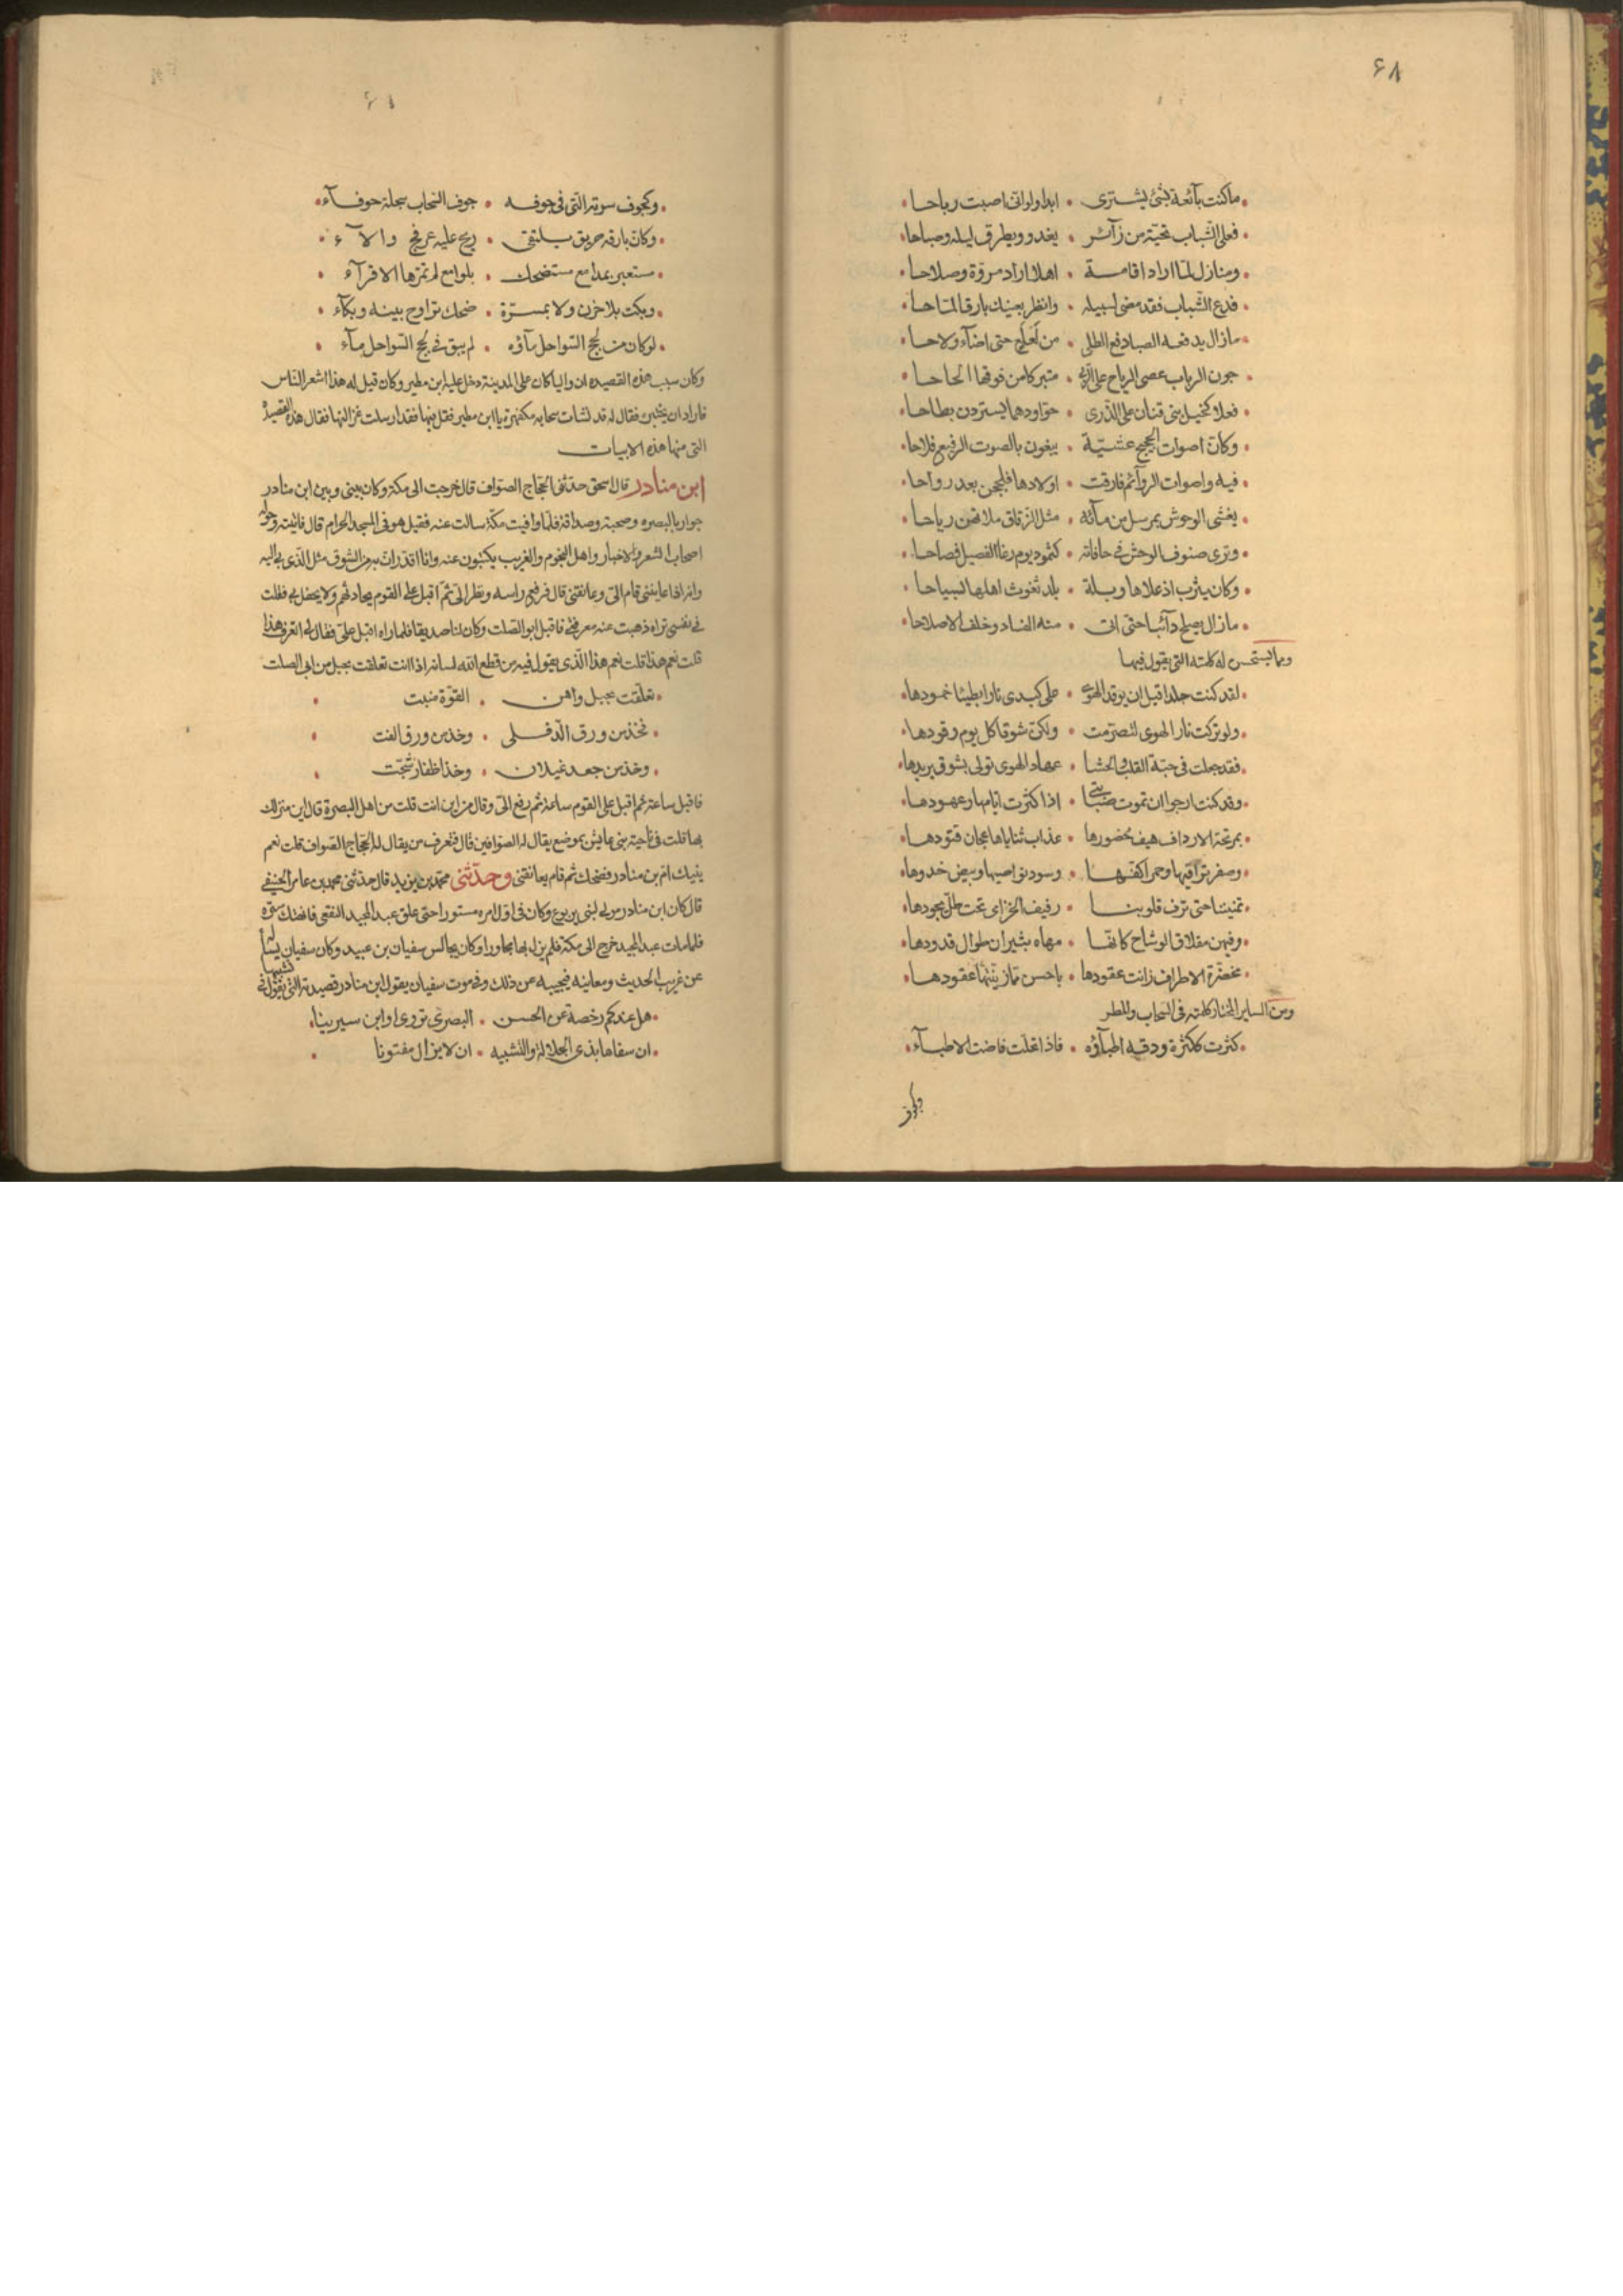 ٤٨
ماكنت بآئعة بشئ يشترى • ابدا ولوانى اصبت رباحا
فعلى الشباب تحية من زآئر • يغدو ويطرق ليله وصباحا
ومنازل لما اراد اقامة • اهلا اراد مروة وصلاحا
فدع الشباب فقد مضى لسبيله • وانظر بعينك بارقا لماحا
مازال يدفعه الصبا دفع الطلى • من لعلع حتى اضآء ولاحا
جون الرباب عصى الرياح على • متبركا من فوقها الحاحا
فعلا كخيل بنى قنان على الذرى • حواودهما يستردن بطاحا
وكان اصوات الحجيج عشية • يبغون بالصوت الرفيع فلاحا
فيه واصوات الروآئم فارقت • اولادها فلججن بعد رواحا
يغشى الوحوش بمرسل من مآئه • مثل الزقاق ملاتهن رياحا
وترى صنوف الوحش فى حافاته • كثمود يوم رغا الفصيل فصاحا
وكان يثرب اذ علاها وبلة • بلد تغوث اهلها لسياحا
مازال يصلح دآئبا حتى اتى • منه الفساد وخلف الاصلاحا
ومما يستحسن له كلمته التى يقول فيها
لقد كنت جلدا قبل ان يوقد الهوى • على كبدى نارا بطيئا خمودها
ولو تركت نار الهوى لتصرمت • ولكن شوقا كل يوم وقودها
فقد جعلت فى حبة القلب والحشا • عهاد الهوى تولى بشوق يريدها
وقد كنت ارجو ان تموت صبابتى • اذا كثرت ايامها وعهودها
بمرتجة الارداف هيف خضورها • عذاب ثناياها عجان قتودها
وصفر تراقيها وحمر اكفها • وسود نواصيها وبيض خدودها
تمنيننا حتى ترف قلوبنا • رفيف الخزامى تحت طل يجودها
وفيهن مقلاق الوشاح كانها • مهاه بشيران طوال قدودها
مخصرة الاطراف زانت عقودها • باحسن مما زينتها عقودها
ومن الساير المختار كلمته فى السحاب والمطر
كثرت ككثرة ودقه اطبآؤه • فاذا تحلت فاضت الاطبآء
وكجوف
وكجوف سرته التى فى جوفه • جوف السحاب سجلة جوفآء
وكان بارقه حريق يلتقى • ريح عليه عرفج والآء
مستعبر بمدامع مستضحك • بلوامع لم تمرها الاقرآء
وبكت بلا حزن ولا بمسرة • ضحك تراوح بينه وبكآء
لو كان من لجج السواحل مآؤه • لم يبق فى لجج السواحل مآء
وكان سبب هذه القصيده ان واليا كان على المدينة دخل عليه ابن مطير وكان قيل له هذا اشعر الناس
فاراد ان يختبره فقال له قد نشات سحابه مكفهرة يا ابن مطير فقل فيها فقد ارسلت عزاليها فقال هذه القصيدة
التى منها هذه الابيات
ابن منادر قال اسحق حدثنى الحجاج الصواف قال خرجت الى مكة وكان بينى وبين ابن منادر
جوار بالبصره وصحبة وصداقة فلما وافيت مكة سالت عنه فقيل هو فى المسجد الحرام قال فاتيته وحوله
اصحاب الشعر والاخبار واهل النجوم والغريب يكتبون عنه وانا اقدر ان به من الشوق مثل الذى بى اليه
وانه اذا عاينني قام الى وعانقنى قال فرفع راسه ونظر الى ثم اقبل على القوم يحادثهم ولا يحفل بى فقلت
فى نفسى تراه ذهبت عنه معرفتى فاقبل ابو الصلت وكان لنا صديقا فلما راه اقبل على فقال لى اتعرف هذا
قلت نعم هذا قلت نعم هذا الذى يقول فيه من قطع الله لسانه اذا انت تعلقت بحبل من ابى الصلت
تعلقت بحبل واهن • القوة منبت
فخذ من ورق الدفلى • وخذ من ورق الفت
وخذ من جعد غيلان • وخذ اظفار شجت
فاقبل ساعة ثم اقبل على القوم ساعة ثم رفع الى وقال من اين انت قلت من اهل البصرة قال اين منزلك
بها قلت فى ناحية بنى عايش بموضع يقال له الصوافين قال فتعرف من يقال له الحجاج الصواف قلت نعم
ينيك ام بن منادر فضحك ثم قام يعانقنى وحدثنى محمد بن يزيد قال حدثنى محمد بن عامر الحنيفى
قال كان ابن منادر مولى لبنى يربوع وكان فى اول امره مستورا حتى علق عبد المجيد الثقفى فانهتك ستره
فلما مات عبد المجيد خرج الى مكة فلم يزل بها مجاورا وكان يجالس سفيان بن عيينه وكان سفيان يسأله
عن غريب الحديث ومعانيه فيجيبه عن ذلك وفى موت سفيان يقول ابن منادر قصيدته التى يقول فى تشبيبها
هل عندكم رخصة عن الحسن • البصرى تروى او ابن سيرينا
ان سفاها بذى الجلالة والتشبيه • ان لا يزال مفتونا